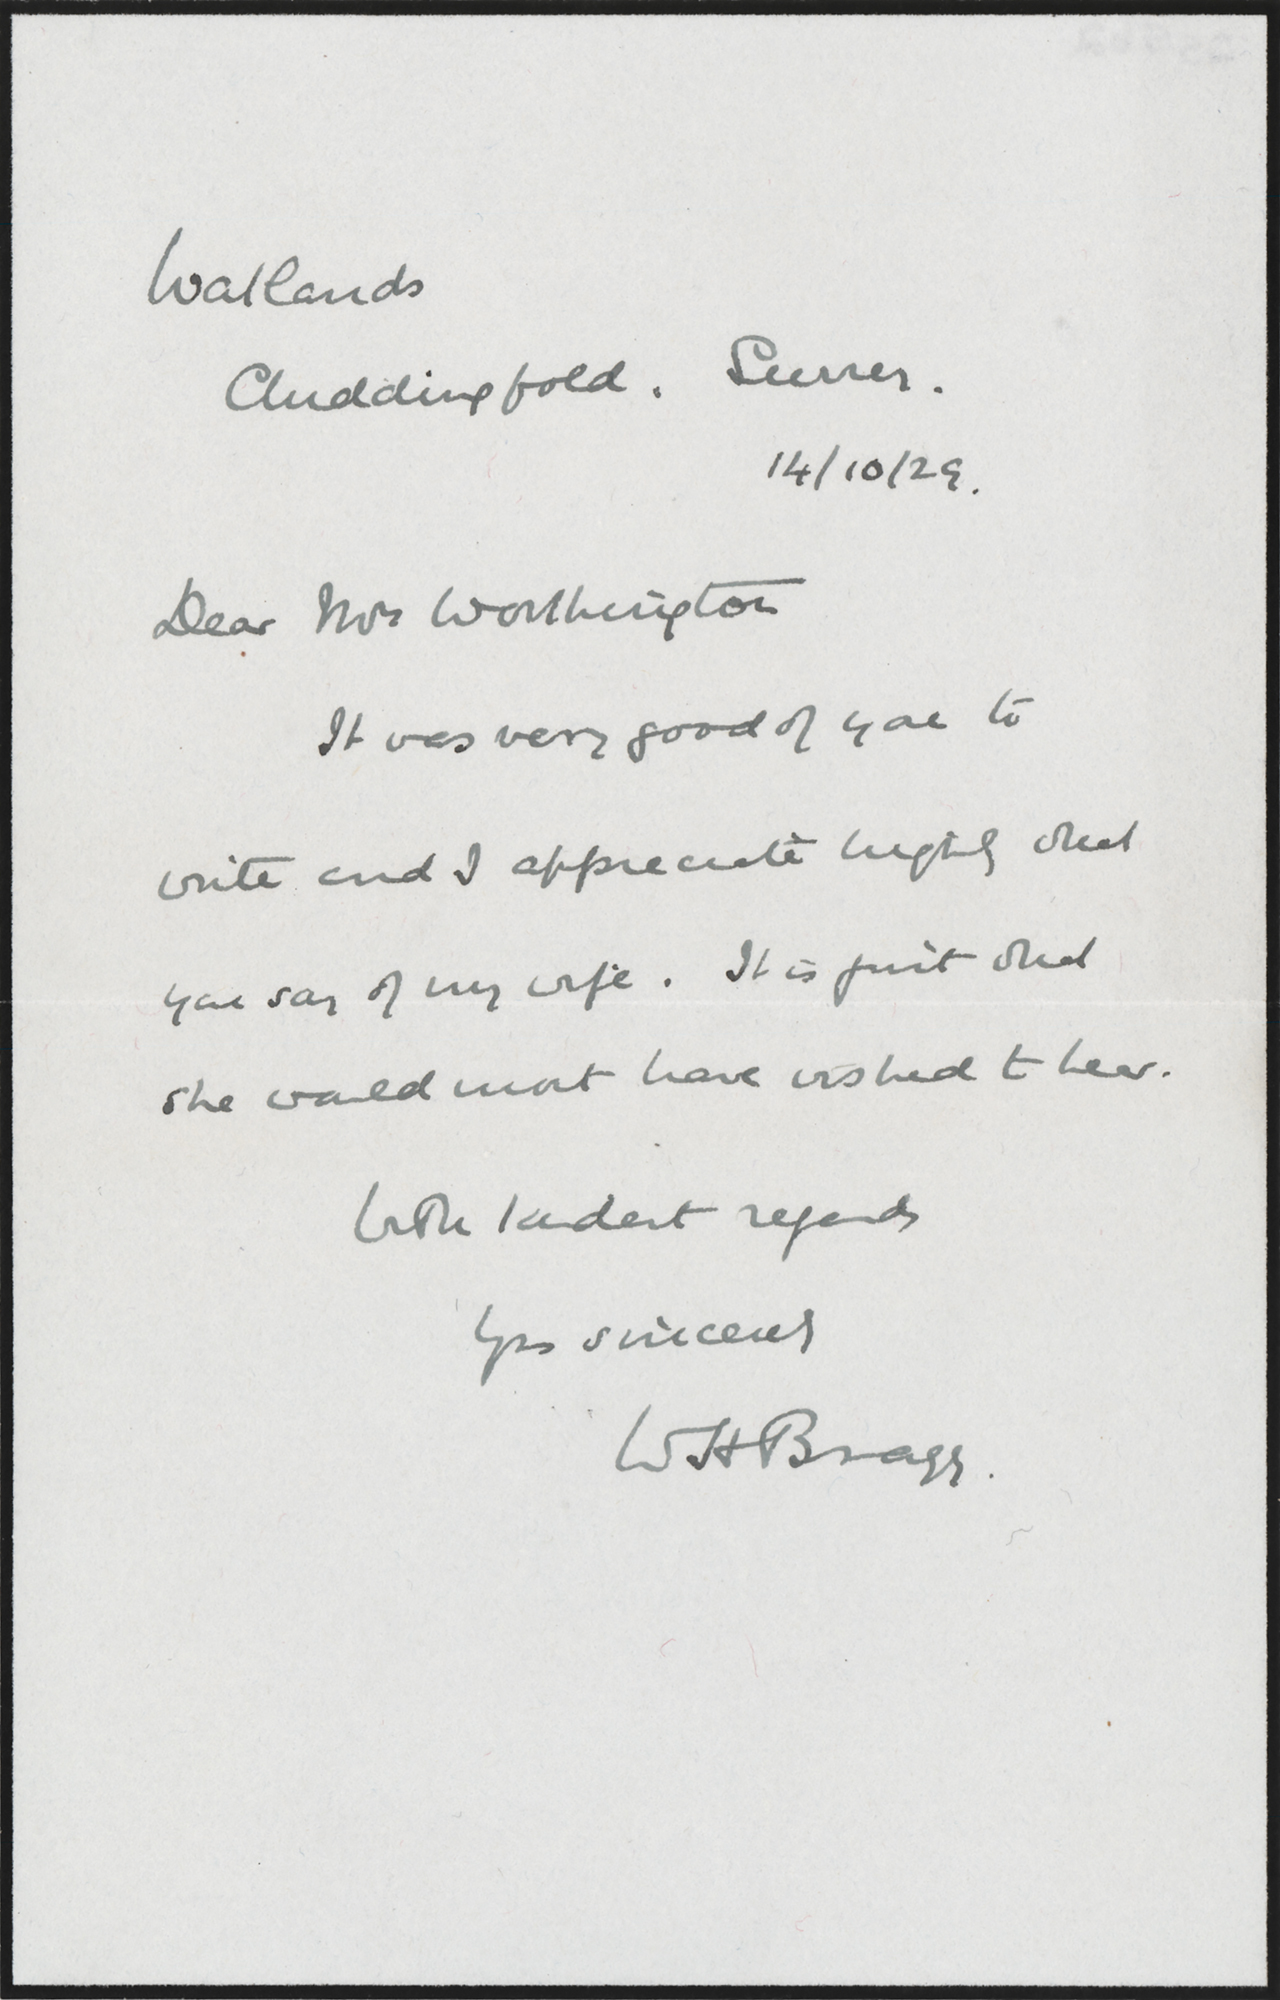 Watlands
Chiddingfold. Surrey.
14/10/29.
Dear Mrs Worthington
It was very good of you to
write and I appreciate highly what
you say of my wife. It is just what
she would most have wished to hear.
With kindest regards
Yrs sincerely
WHBragg.